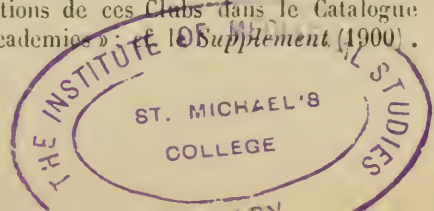 tions de ces Clubs dans le Catalogue
cademies » ; cf. le Supplement (1900).
THE INSTITUTE OF MEDIAEVAL STUDIES
ST. MICHAEL'S
COLLEGE